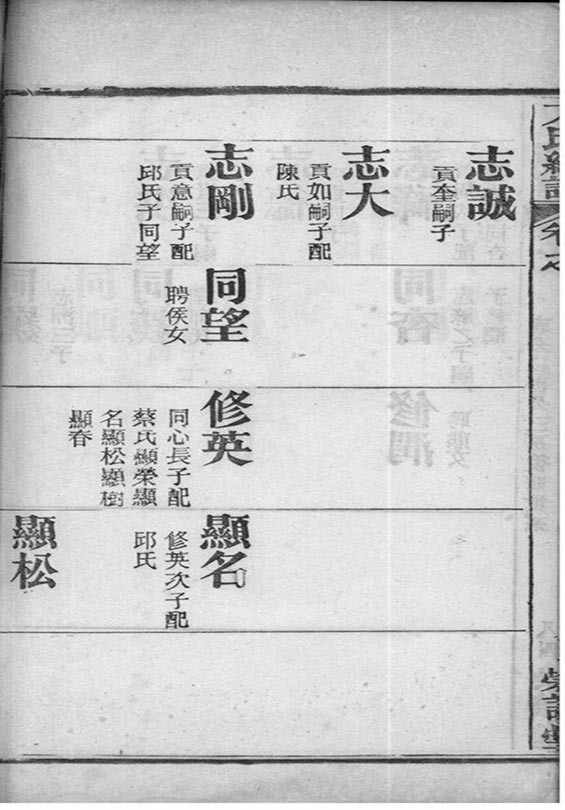 志誠
貢奎嗣子
志大
貢如嗣子配
陳氏
志剛
貢意嗣子配
邱氏子同望
同望
聘侯女
修英
同心長子配
蔡氏顯榮顯
名顯松顯樹
顯春
顯名
修英次子配
邱氏
顯松